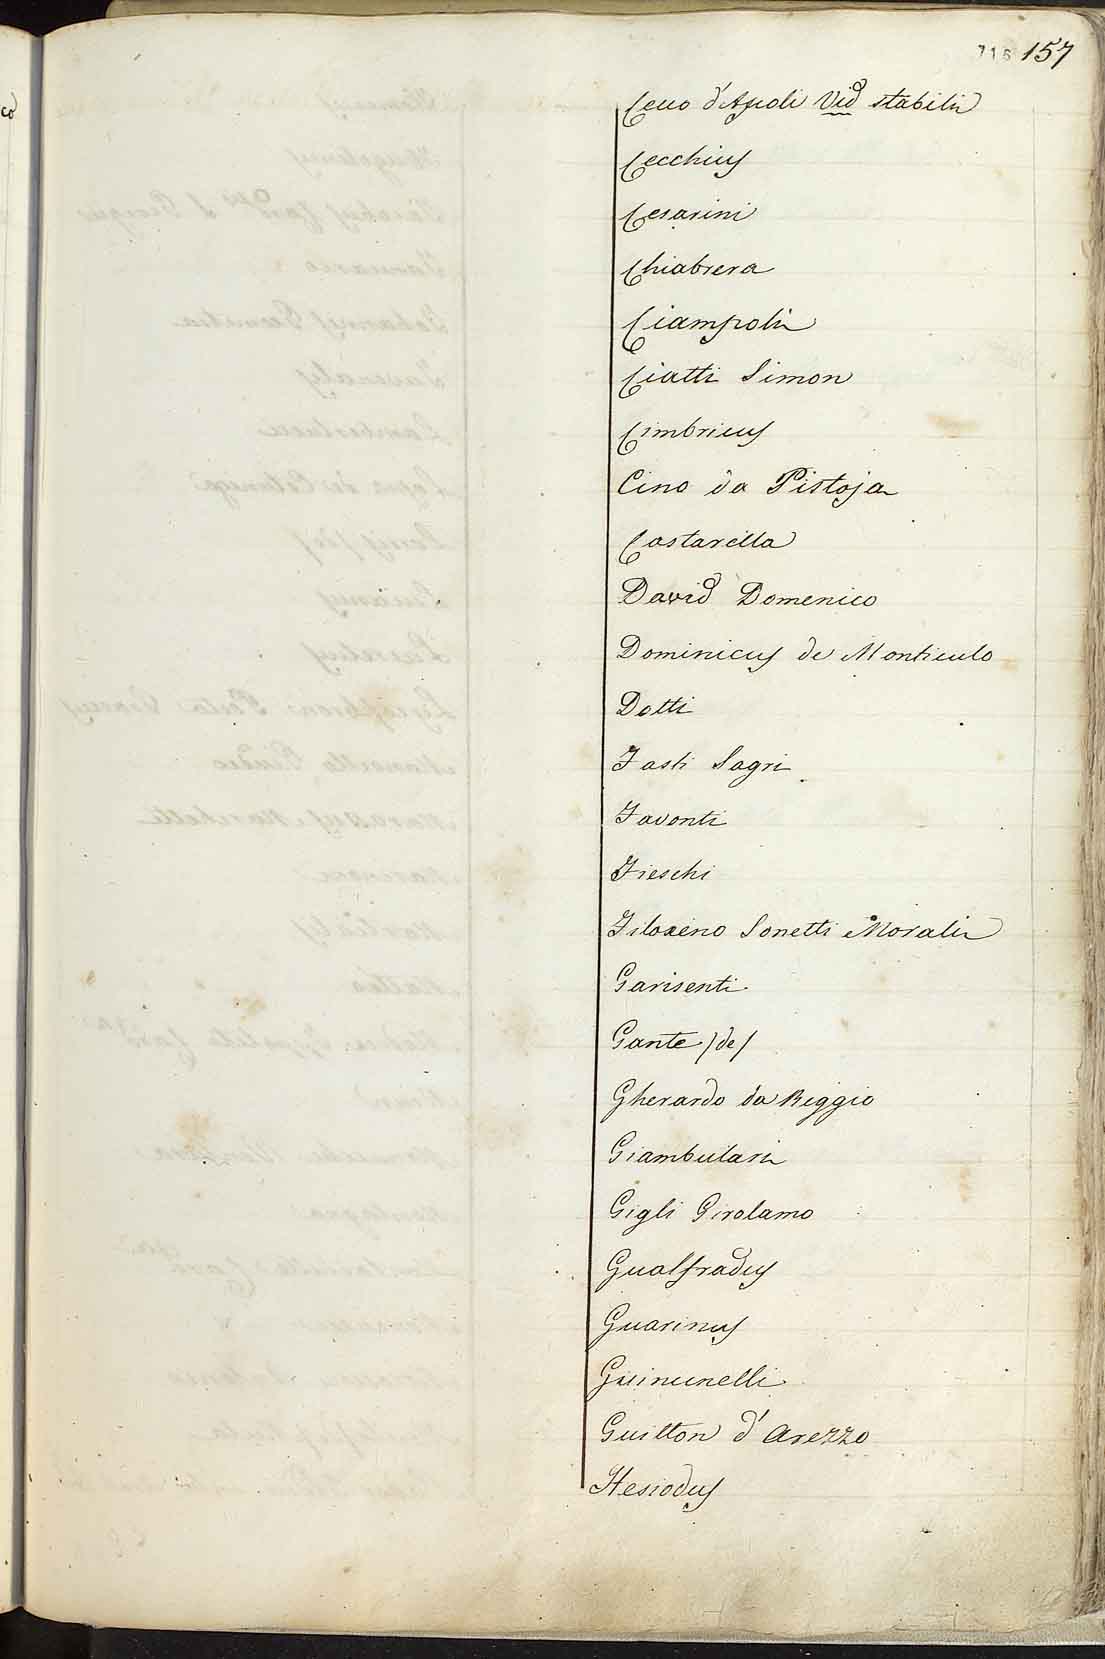 716 157
Cecco d'Ascoli Vid Stabili
Cecchius
Cesarini
Chiabrera
Ciampoli
Ciatti Simon
Cimbricus
Cino da Pistoja
Costarella
David Domenico
Dominicus de Monticulo
Dotti
Fasti Sagri
Favonti
Fieschi
Filoxeno Sonetti Morali
Garisenti
Gante (de)
Gherardo da Reggio
Giambulari
Gigli Girolamo
Gualfradus
Guarinus
Guinunelli
Guitton d'Arezzo
Hesiodus